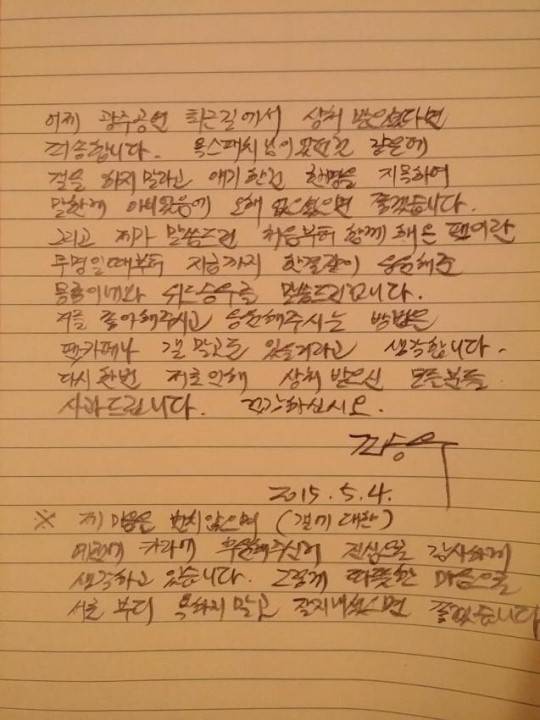 어제 광주공연 퇴근길에서 상처 받으셨다면
죄송합니다. 욕스패치님이 같은데
걸을 하지말라고 얘기한건 한명을 지목하여
말한게 아니었음에 오해 없으셨으면 좋겠습니다.
그리고 제가 말씀드린 처음부터 함께 해온 팬이란
무명일때부터 지금까지 한결같이 응원해준
위드승우를 말씀드린겁니다.
저를 좋아해주시고 응원해주시는 방법은
팬카페나 갤 말고도 있을거라고 생각합니다.
다시한번 저로인해 상처 받으신 모든분들
사과드립니다. 건강하십시오.
2015. 5. 4.
※ 제 마음은 변치않으며 (갤에 대한)
예전에 카라에 후원해주신거 진심으로 감사하게
생각하고 있습니다. 그렇게 따뜻한 마음으로
서로 부디 욕하지말고 잘지내셨으면 좋겠습니다